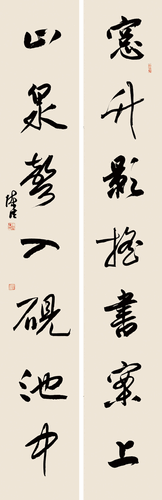 窓升影摇書案上
山泉聲入硯池中